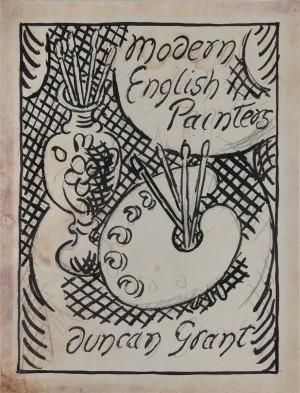 Modern
English
Painters
Duncan Grant